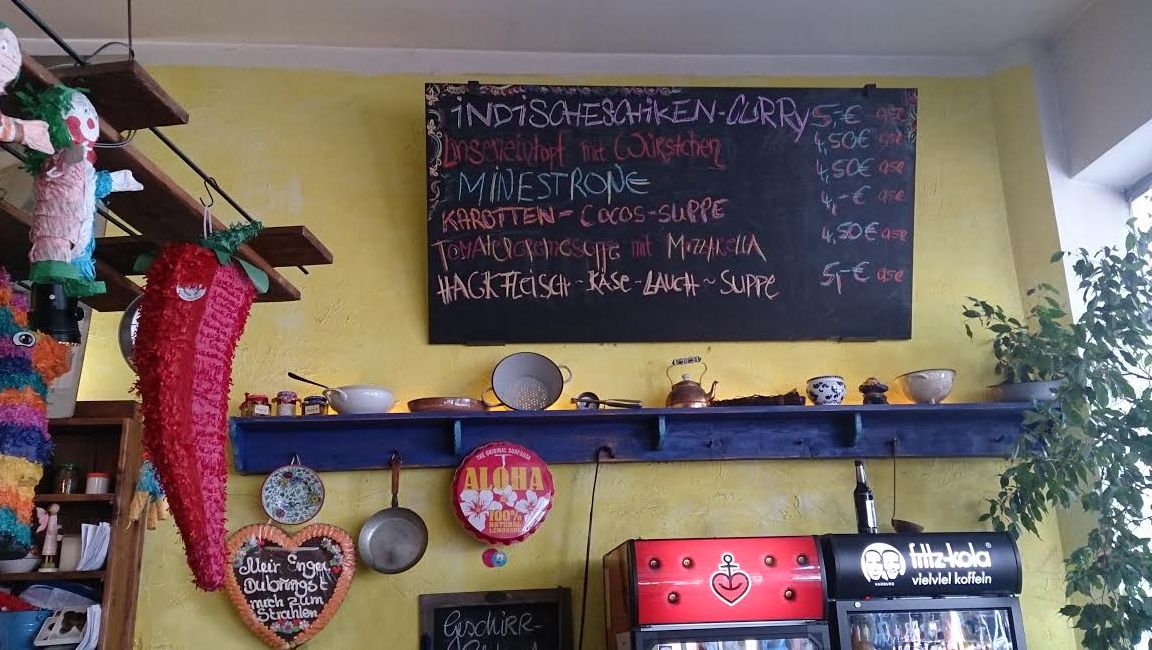 iNDiSCHESCHiKEN-CURRy 5,-€
Linseneintopf mit Würstchen 4,50€
MINESTRONE 4,50€
KAROTTEN-COCOS-SUPPE 4,-€
TOMATENCREMESUPPE mit MOZZARELLA 4,50€
HACKFLEiSCH-KÄSE-LAUCH~SUPPE 5,-€
THE ORIGINAL
ALOHA
100%
NATURAL
LEMONADE
Mein Engel
Du bringst
mich zum
Strahlen
Geschirr-
fritz-kola
HAMBURG
vielviel koffein